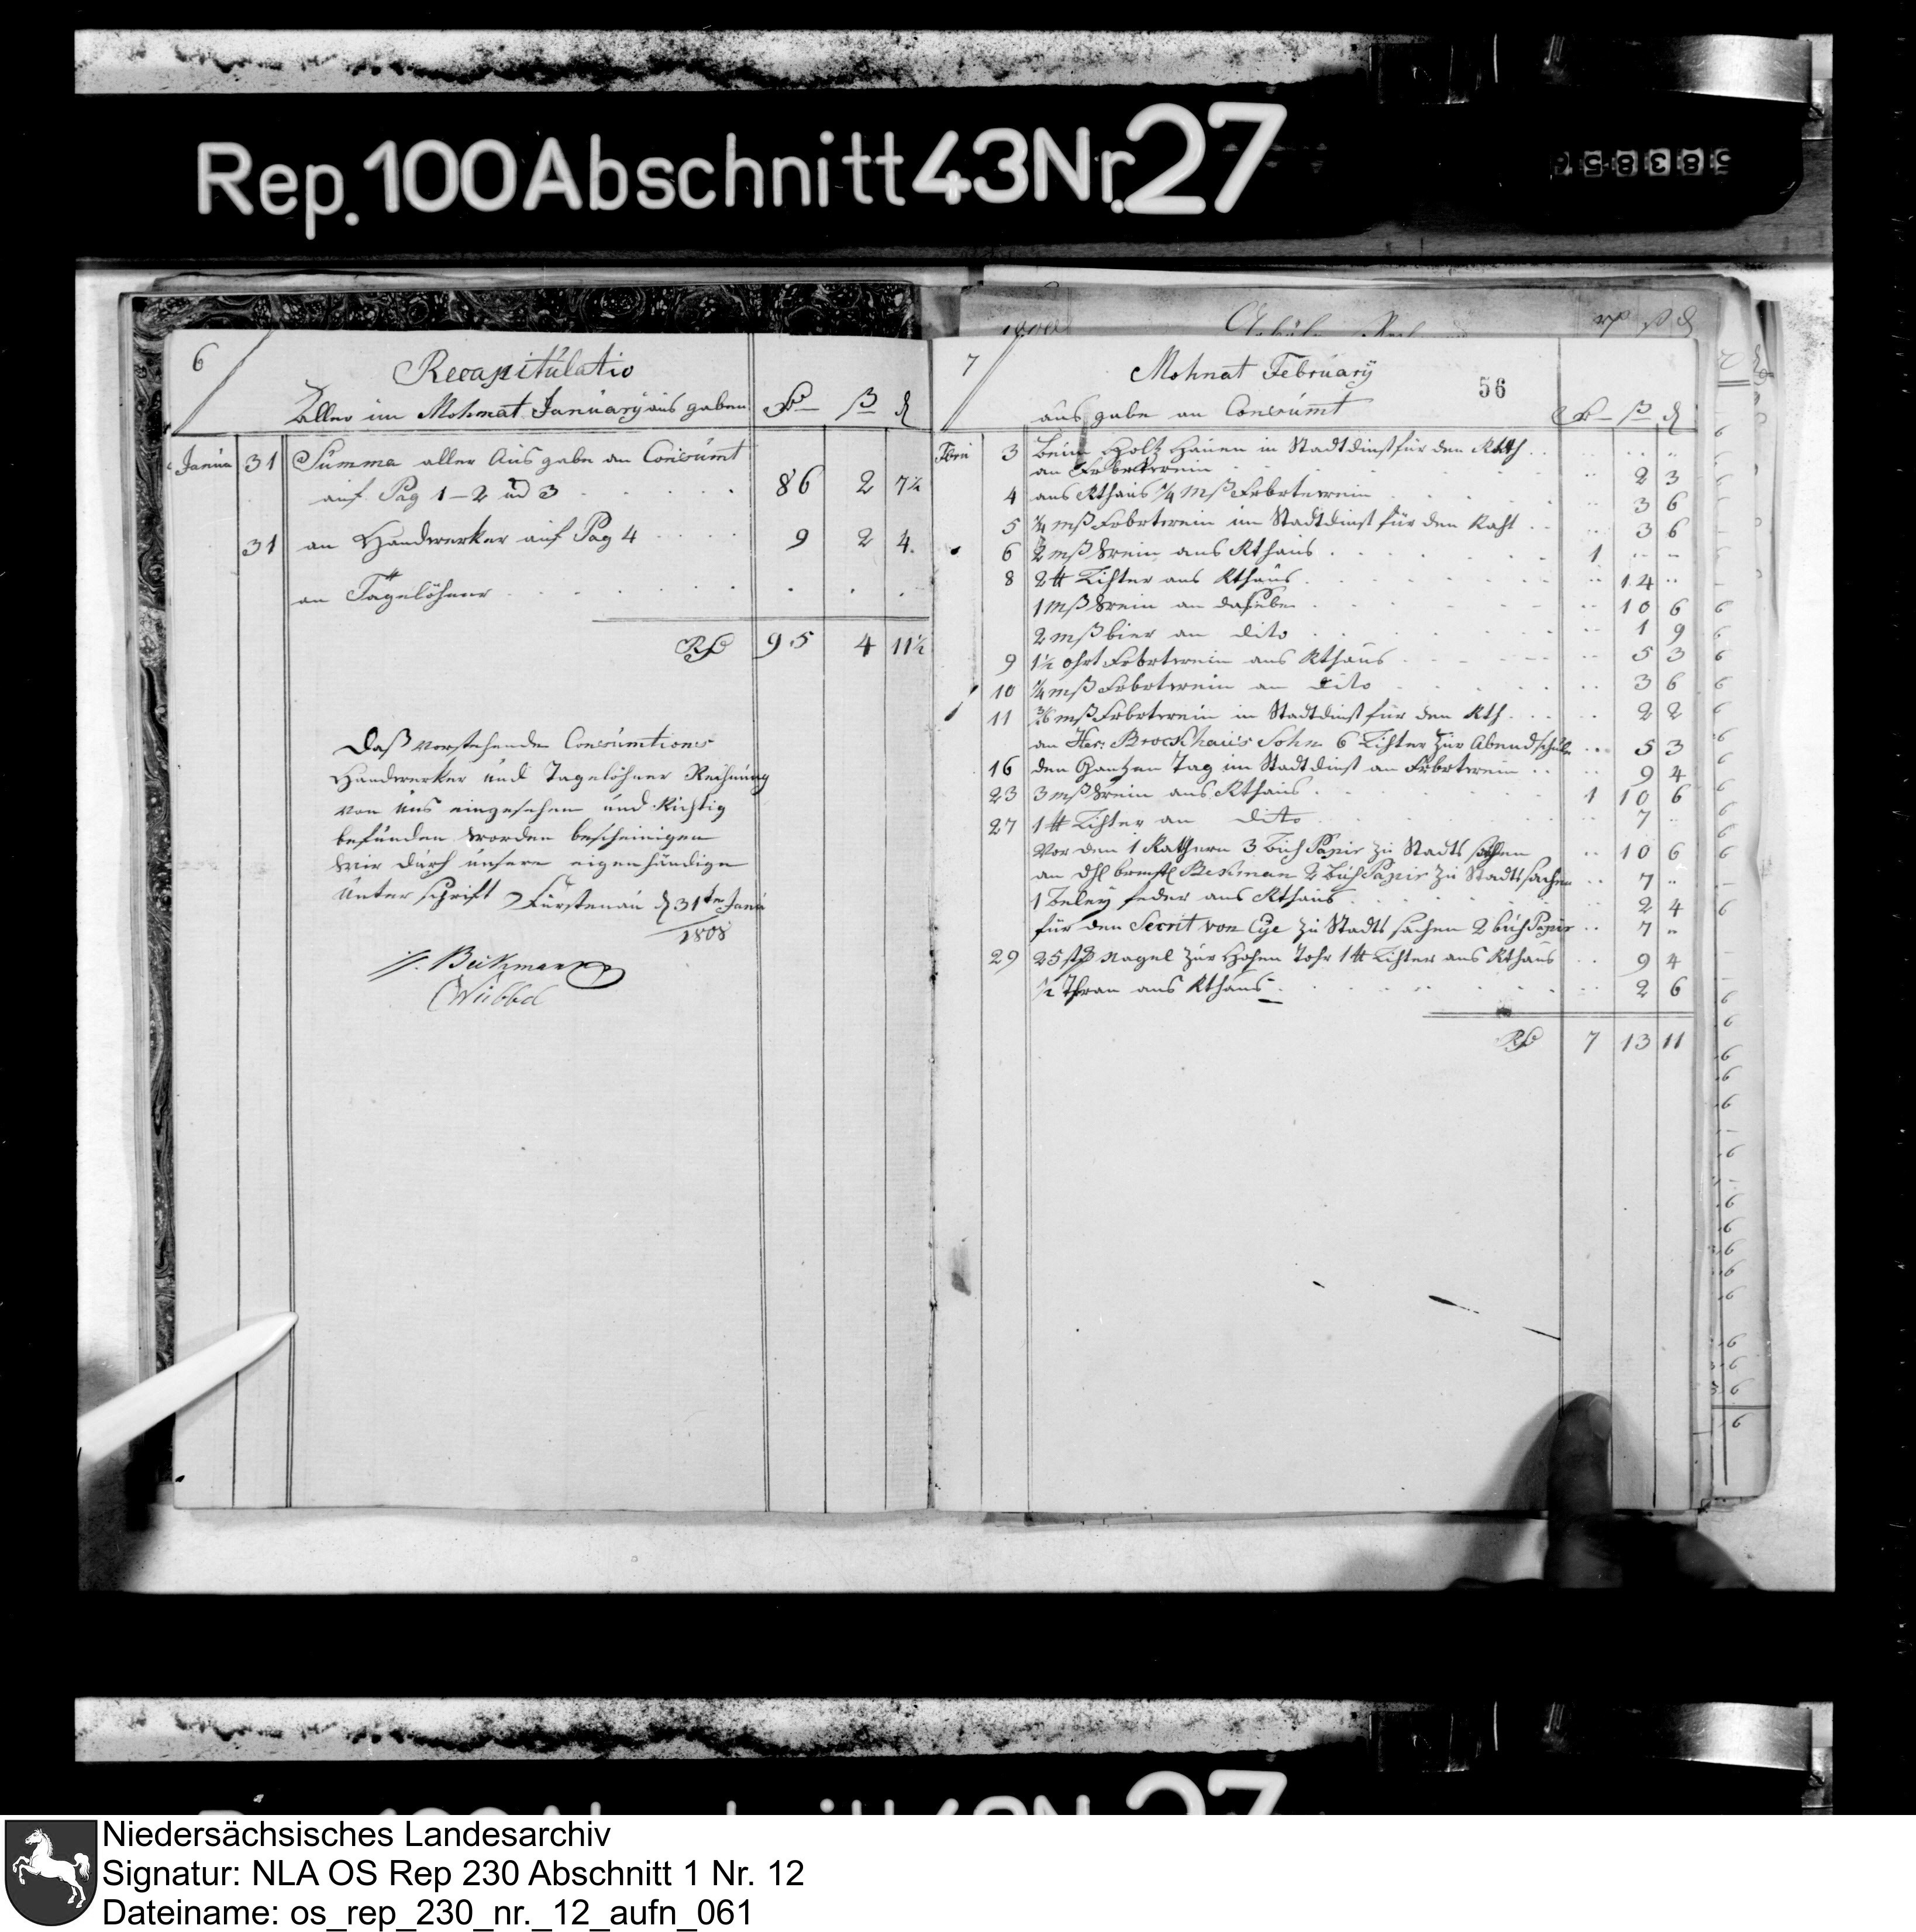 Rep. 100 Abschnitt 43 Nr. 27
6
Recapitulatio
aller im Mohnat January aus gaben
Rt ß ₰
Janua 31 Summa aller Aus gabe an Consumt
auf Pag 1-2 und 3 86 2 7½
31 an Handwerker auf Pag 4 9 2 4
an Tagelöhner
Rt 95 4 11½
Daß vorstehende Consumtions
Handwerker und Tagelöhner Rechnung
von uns eingesehen und Richtig
befunden worden bescheinigen
wir durch unsere eigenhändige
Unterschrift Fürstenau d 31ten Janu
1808
Beckmann
Wübbel
7
Mohnat February
56
aus gabe an Consumt
Rt ß ₰
3 beim Holtz Hauen in Stadtdinst für den Rath
2 3
4 aus Rthaus ¼ mß 3 6
5 ¼ mß im Stadtdinst für den Raht 3 6
6 2 mß wein aus Rthaus 1
8 2 ℔ Lichter aus Rthaus 14
1 mß wein an daselbe 10 6
2 mß bier an dito 1 9
9 1½ ohrt aus Rthaus 5 3
10 ¼ mß an dito 3 6
11 mß in Stadtdinst für den Rth 2 2
an Her: Brockhaus Sohn 6 Lichter zur Abendschule 5 3
16 den Gantzen Tag im Stadtdinst an 9 4
23 3 mß wein aus Rthaus 1 10 6
27 1 ℔ Lichter an dito 7
vor den 1 Rathern 3 buch Papir zu Stadts sachen 10 6
an Beckman 2 buch Papir zu Stadtssachen 7
1 feder aus Rthaus 2 4
für den Secrit von Eye zu Stadts sachen 2 buch Papir 7
29 25 Nagel zur Hohen Tohr 1 ℔ Lichter aus Rthaus 9 4
½ Thran aus Rthaus 2 6
Rt 7 13 11
Niedersächsisches Landesarchiv
Signatur: NLA OS Rep 230 Abschnitt 1 Nr. 12
Dateiname: os_rep_230_nr._12_aufn_061